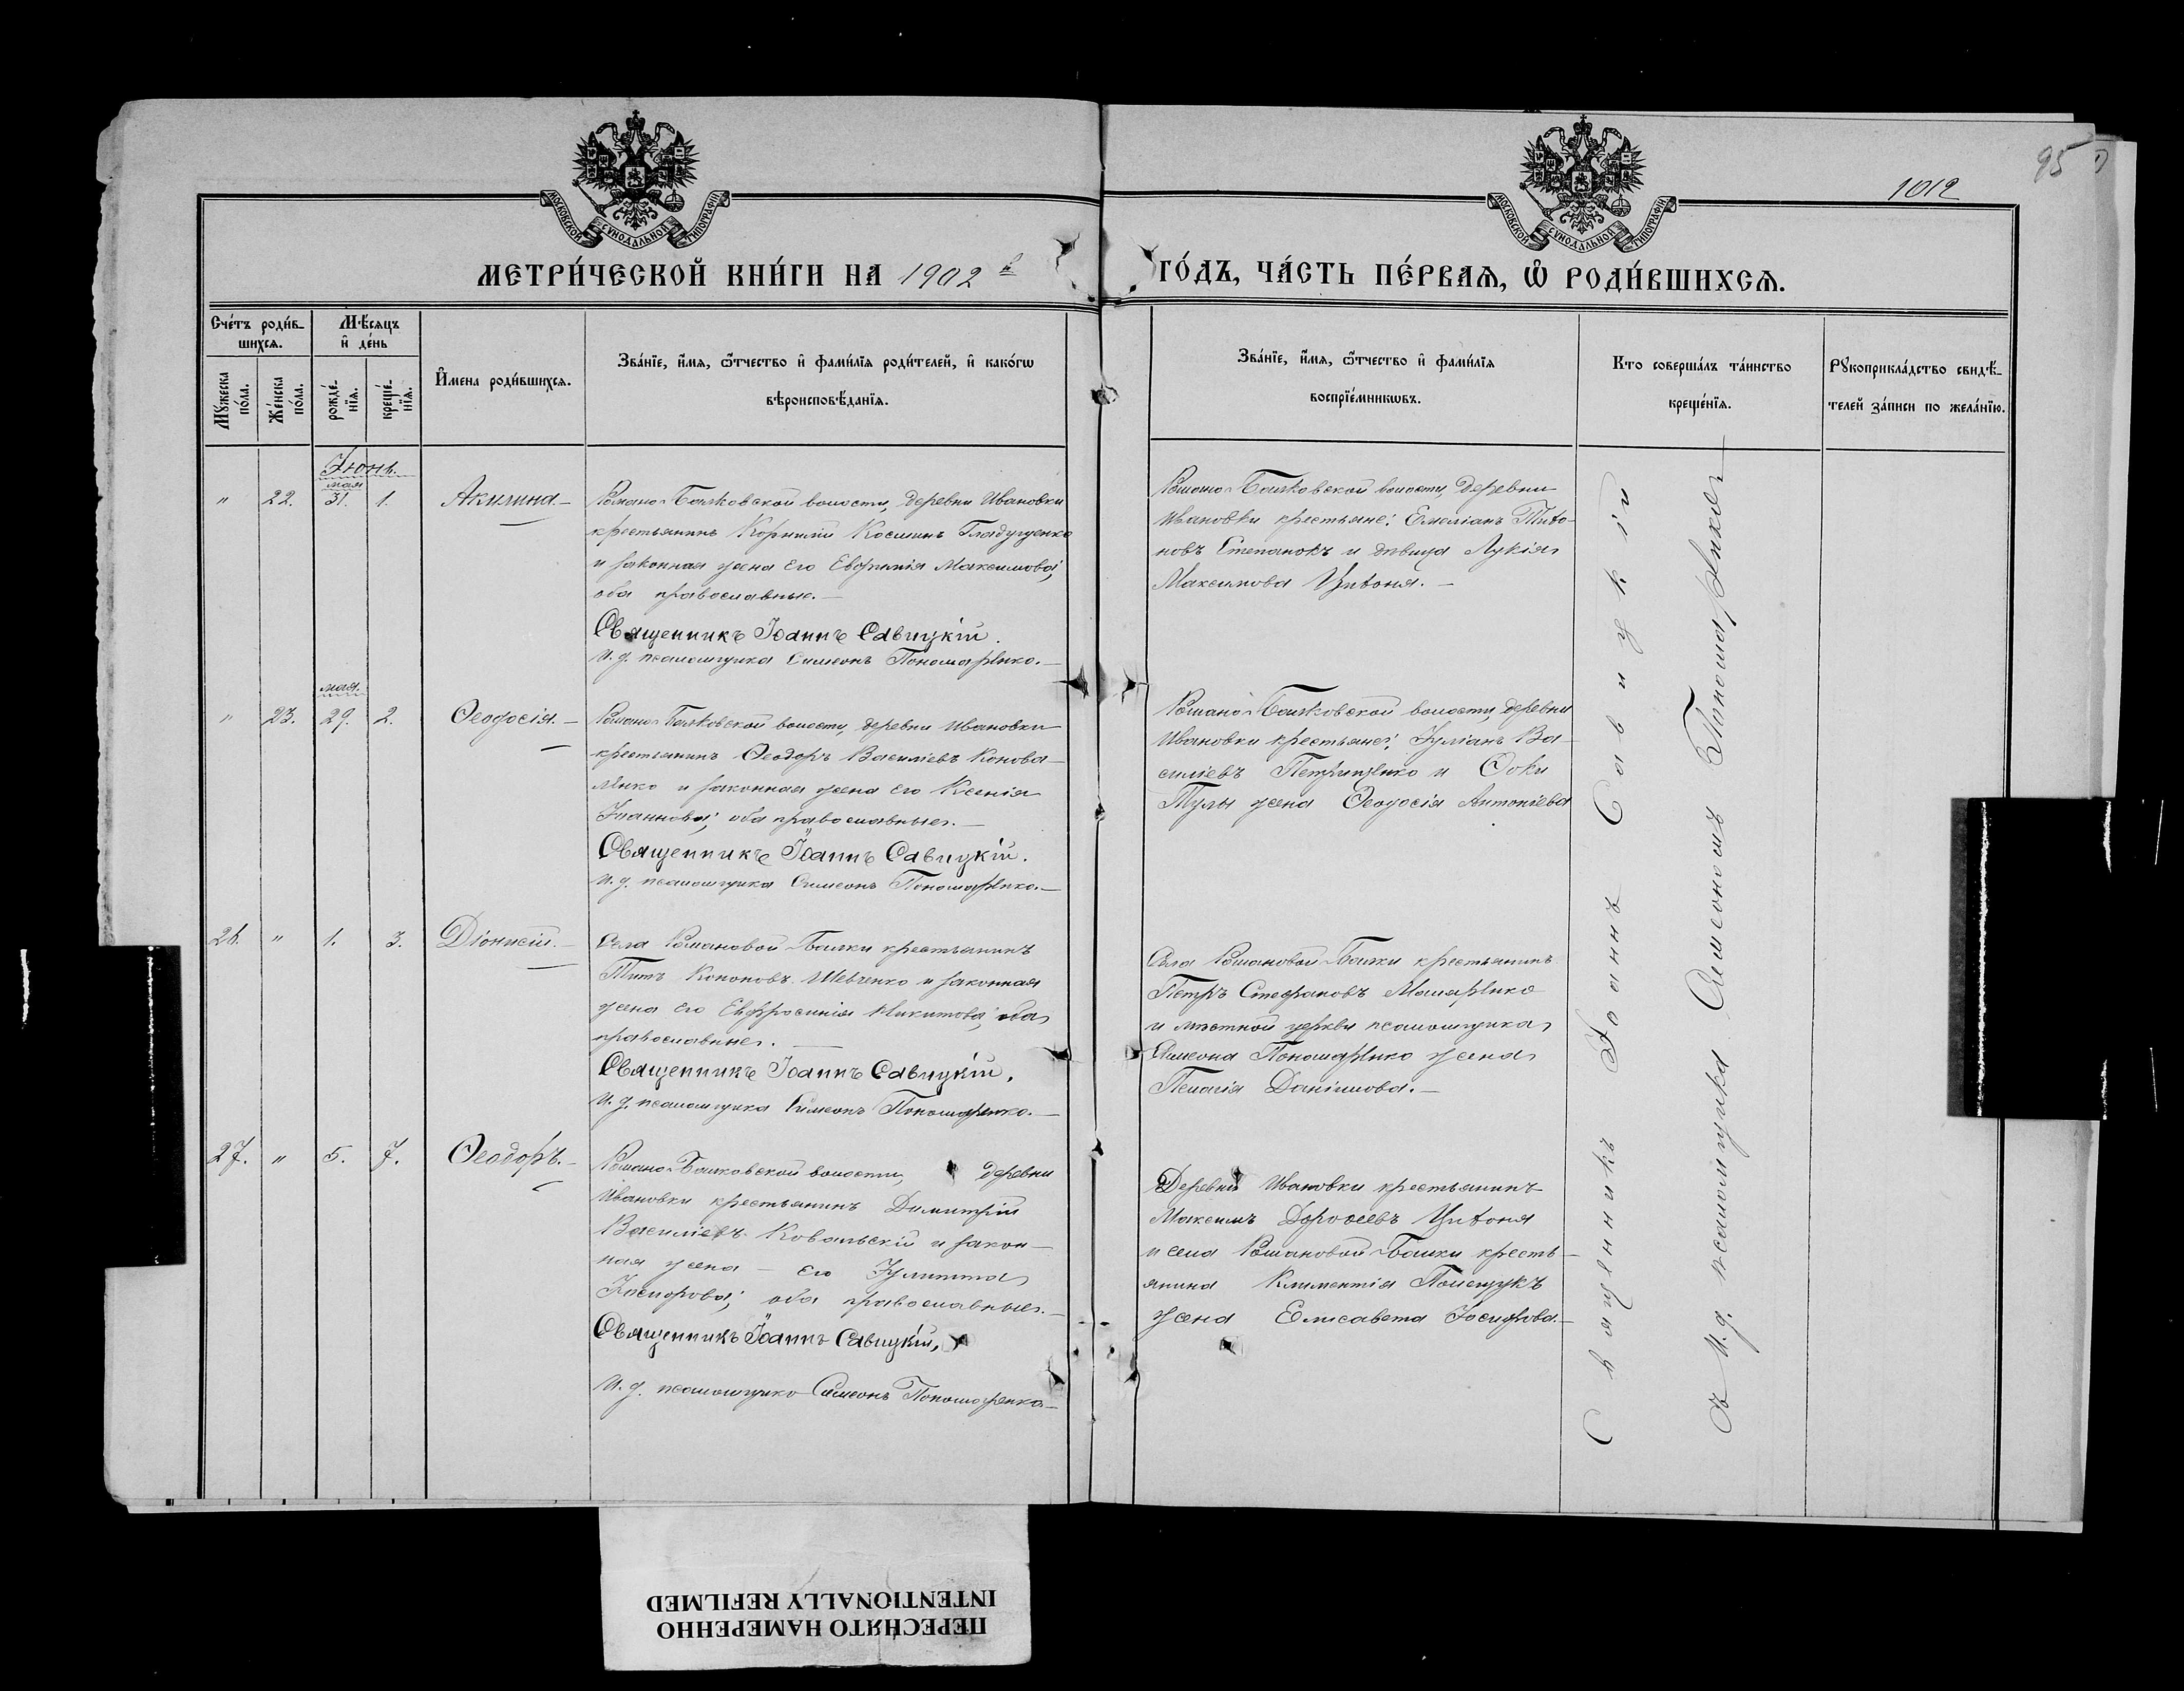 95
1012
МОСКОВСКОЙ СѴНОДАЛЬНОЙ ТИПОГРАФІИ
МОСКОВСКОЙ СѴНОДАЛЬНОЙ ТИПОГРАФІИ
МЕТРИ́ЧЕСКОЙ КНИ́ГИ НА 1902 й
ГО́ДЪ, ЧА́СТЬ ПЕ́РВАѦ, Ѽ РОДИ́ВШИХСѦ.
Сче́тъ роди́в-
шихсѧ.
Мꙋ́жеска
по́ла.
Же́нска
по́ла.
Мѣ́сѧцъ
и҆ де́нь
рожде́-
нїѧ.
креще́-
нїѧ.
И҆мена роди́вшихсѧ.
Зва́нїе, и҆́мѧ, ѻ҆́тчество и҆ фами́лїѧ роди́телей, и҆ како́гѡ
вѣроисповѣ́данїѧ.
Зва́нїе, и҆́мѧ, ѻ҆́тчество и҆ фами́лїѧ
воспрїе́мникѡвъ.
Кто соверша́лъ та́инство
креще́нїѧ.
Рꙋкоприкла́дство свидѣ́-
телей за́писи по жела́нїю.
Іюнь.
мая
" 22. 31. 1. Акилина.—
Романо-Балковской волости, деревни Ивановки
крестьянинъ Корнилій Косминъ Гладущенко
и законная жена его Евфимія Максимова,
оба православные.—
Священникъ Іоаннъ Савицкій.
И. д. псаломщика Симеонъ Пономаренко.—
Романо-Балковской волости, деревни
Ивановки крестьяне: Емеліанъ Тито-
новъ Степанокъ и девица Лукія
Максимова Цивоня.—
мая.
" 23. 29. 2. Ѳеодосія.—
Романо-Балковской волости, деревни Ивановки
крестьянинъ Ѳеодоръ Василіевъ Конова-
ленко и законная жена его Ксенія
Іоаннова, оба православные.—
Священникъ Іоаннъ Савицкій.
И. д. псаломщика Симеонъ Пономаренко.—
Романо-Балковской волости, деревни
Ивановки крестьяне: Іуліанъ Ва-
силіевъ Петриченко и Ѳоки
Тулы жена Ѳеодосія Антоніева
26. " 1. 3. Діонисій.—
Села Романовой-Балки крестьянинъ
Титъ Кононовъ Шевченко и законная
жена его Евфросинія Никитова, оба
православные.—
Священникъ Іоаннъ Савицкій.
И. д. псаломщика Симеонъ Пономаренко.—
Села Романовой-Балки крестьянинъ
Петръ Стефановъ Макаренко
и местной церкви псаломщика
Симеона Пономаренко жена
Пелагія Даніилова.—
27. " 5. 7. Ѳеодоръ.—
Романо-Балковской волости, деревни
Ивановки крестьянинъ Димитрій
Василіевъ Ковальскій и закон-
ная жена - его Іулитта
Исидорова, оба православные.—
Священникъ Іоаннъ Савицкій.
И. д. псаломщика Симеонъ Пономаренко.—
Деревни Ивановки крестьянинъ
Максимъ Дороѳеевъ Цивоня
и села Романовой-Балки кресть-
янина Климентія Полещукъ
жена Елисавета Іосифова.—
Священникъ Іоаннъ Савицкій
съ И. д. псаломщика Симеономъ Пономаренкою
ПЕРЕСНЯТО НАМЕРЕННО
INTENTIONALLY REFILMED